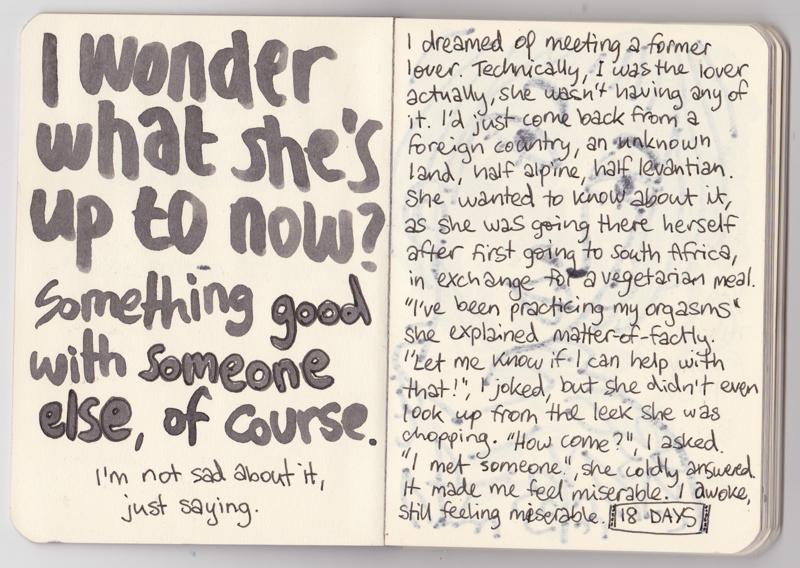 I wonder
what she's
up to now?
Something good
with someone
else, of course.
I'm not sad about it,
just saying.
I dreamed of meeting a former
lover. Technically, I was the lover
actually, she wasn't having any of
it. I'd just come back from a
foreign country, an unknown
land, half alpine, half levantian.
She wanted to know about it,
as she was going there herself
after first going to South Africa,
in exchange for a vegetarian meal.
"I've been practicing my orgasms"
she explained matter-of-factly.
"Let me know if I can help with
that!", I joked, but she didn't even
look up from the leek she was
chopping. "How come?", I asked.
"I met someone", she coldly answered.
It made me feel miserable. I awoke,
still feeling miserable. 18 DAYS